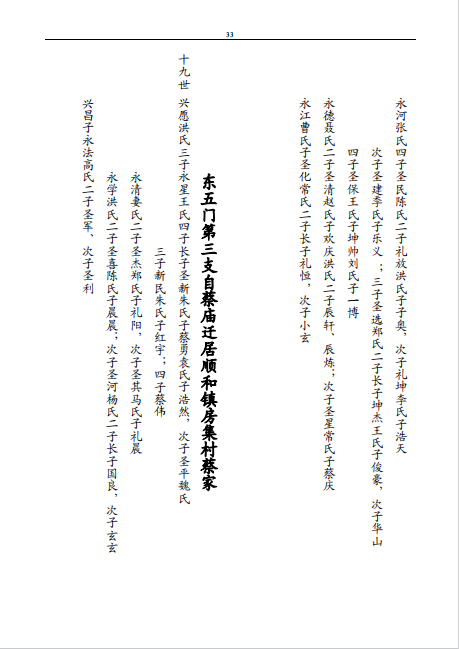 33
永河张氏四子圣民陈氏二子礼放洪氏子子奥、次子礼坤李氏子浩天
次子圣建李氏子乐义；三子圣选郑氏二子长子坤杰王氏子俊豪，次子华山
四子圣保王氏子坤帅刘氏子一博
永德聂氏二子圣清赵氏子欢庆洪氏二子辰轩、辰炼；次子圣星常氏子蔡庆
永江曹氏子圣化常氏二子长子礼恒，次子小玄
东五门第三支自蔡庙迁居顺和镇房集村蔡家
十九世 兴愿洪氏三子永星王氏四子长子圣新朱氏子蔡勇袁氏子浩然，次子圣平魏氏
三子新民朱氏子红宇；四子蔡伟
永清妻氏二子圣杰郑氏子礼阳，次子圣其马氏子礼晨
永学洪氏二子圣喜陈氏子晨晨；次子圣河杨氏二子长子国良，次子玄玄
兴昌子永法高氏二子圣军、次子圣利